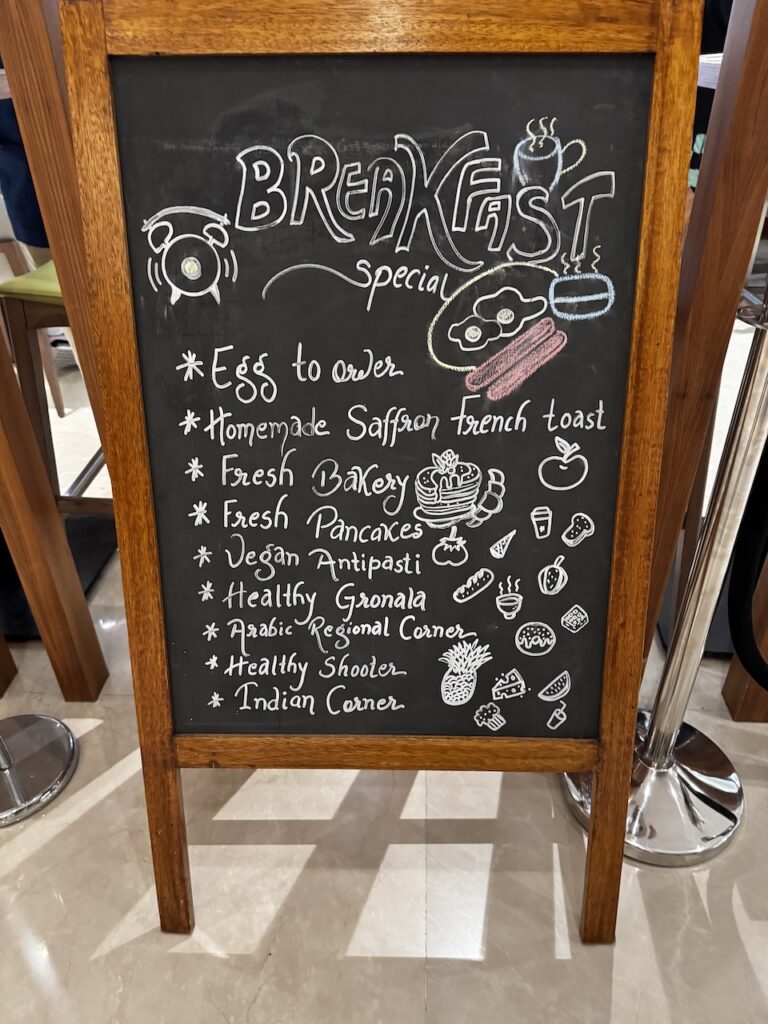 BREAKFAST
special
* Egg to order
* Homemade Saffron French toast
* Fresh Bakery
* Fresh Pancakes
* Vegan Antipasti
* Healthy Gronala
* Arabic Regional Corner
* Healthy Shooter
* Indian Corner